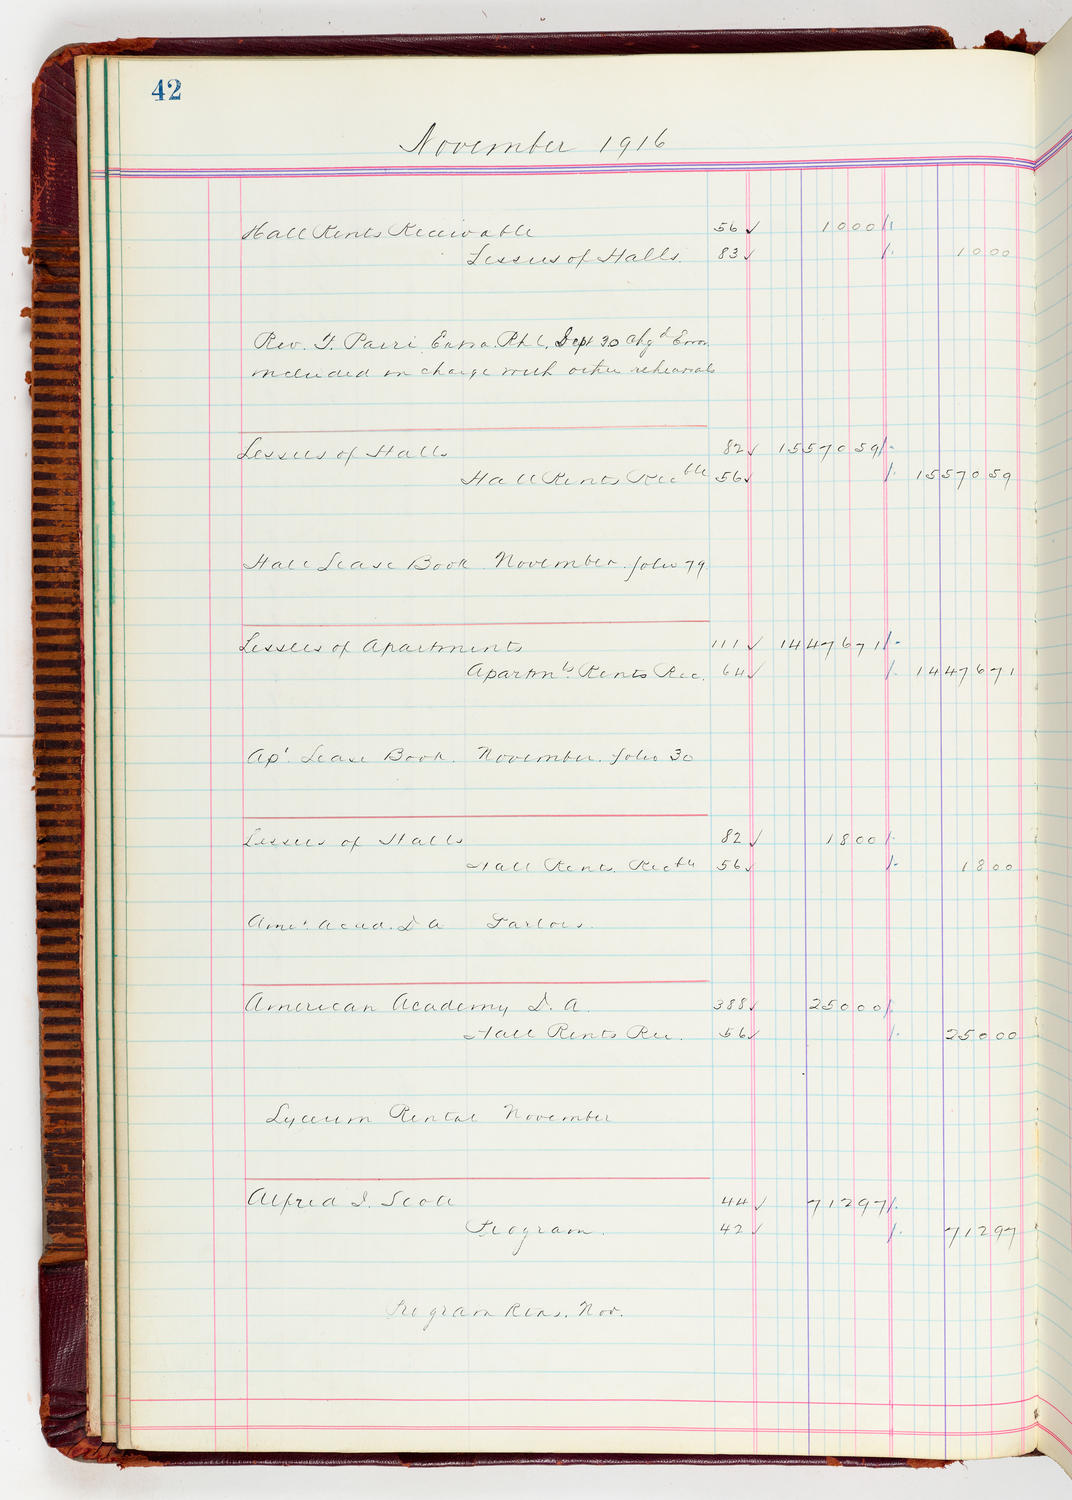 42
November 1916
Hall Rents Receivable 56 ✓ 1000
Lessees of Halls 83 ✓ 1000
Rev. Sept 30 Chgd Error
included in charge with other rehearsals
Lessees of Halls 82 ✓ 1557059
Hall Rents Recble 56 ✓ 1557059
Hall Lease Book November. folio 79
Lessees of Apartments 111 ✓ 1447671
Apartmts. Rents Rec. 64 ✓ 1447671
Apt. Lease Book. November. folio 30
Lessees of Halls 82 ✓ 1800
Hall Rents. Recble 56 ✓ 1800
Amer. Acad. D A Parlors.
American Academy D. A. 388 ✓ 25000
Hall Rents Rec. 56 ✓ 25000
Lyceum Rental November
Alfred Scott 44 ✓ 71297
Program. 42 ✓ 71297
Program Nov.